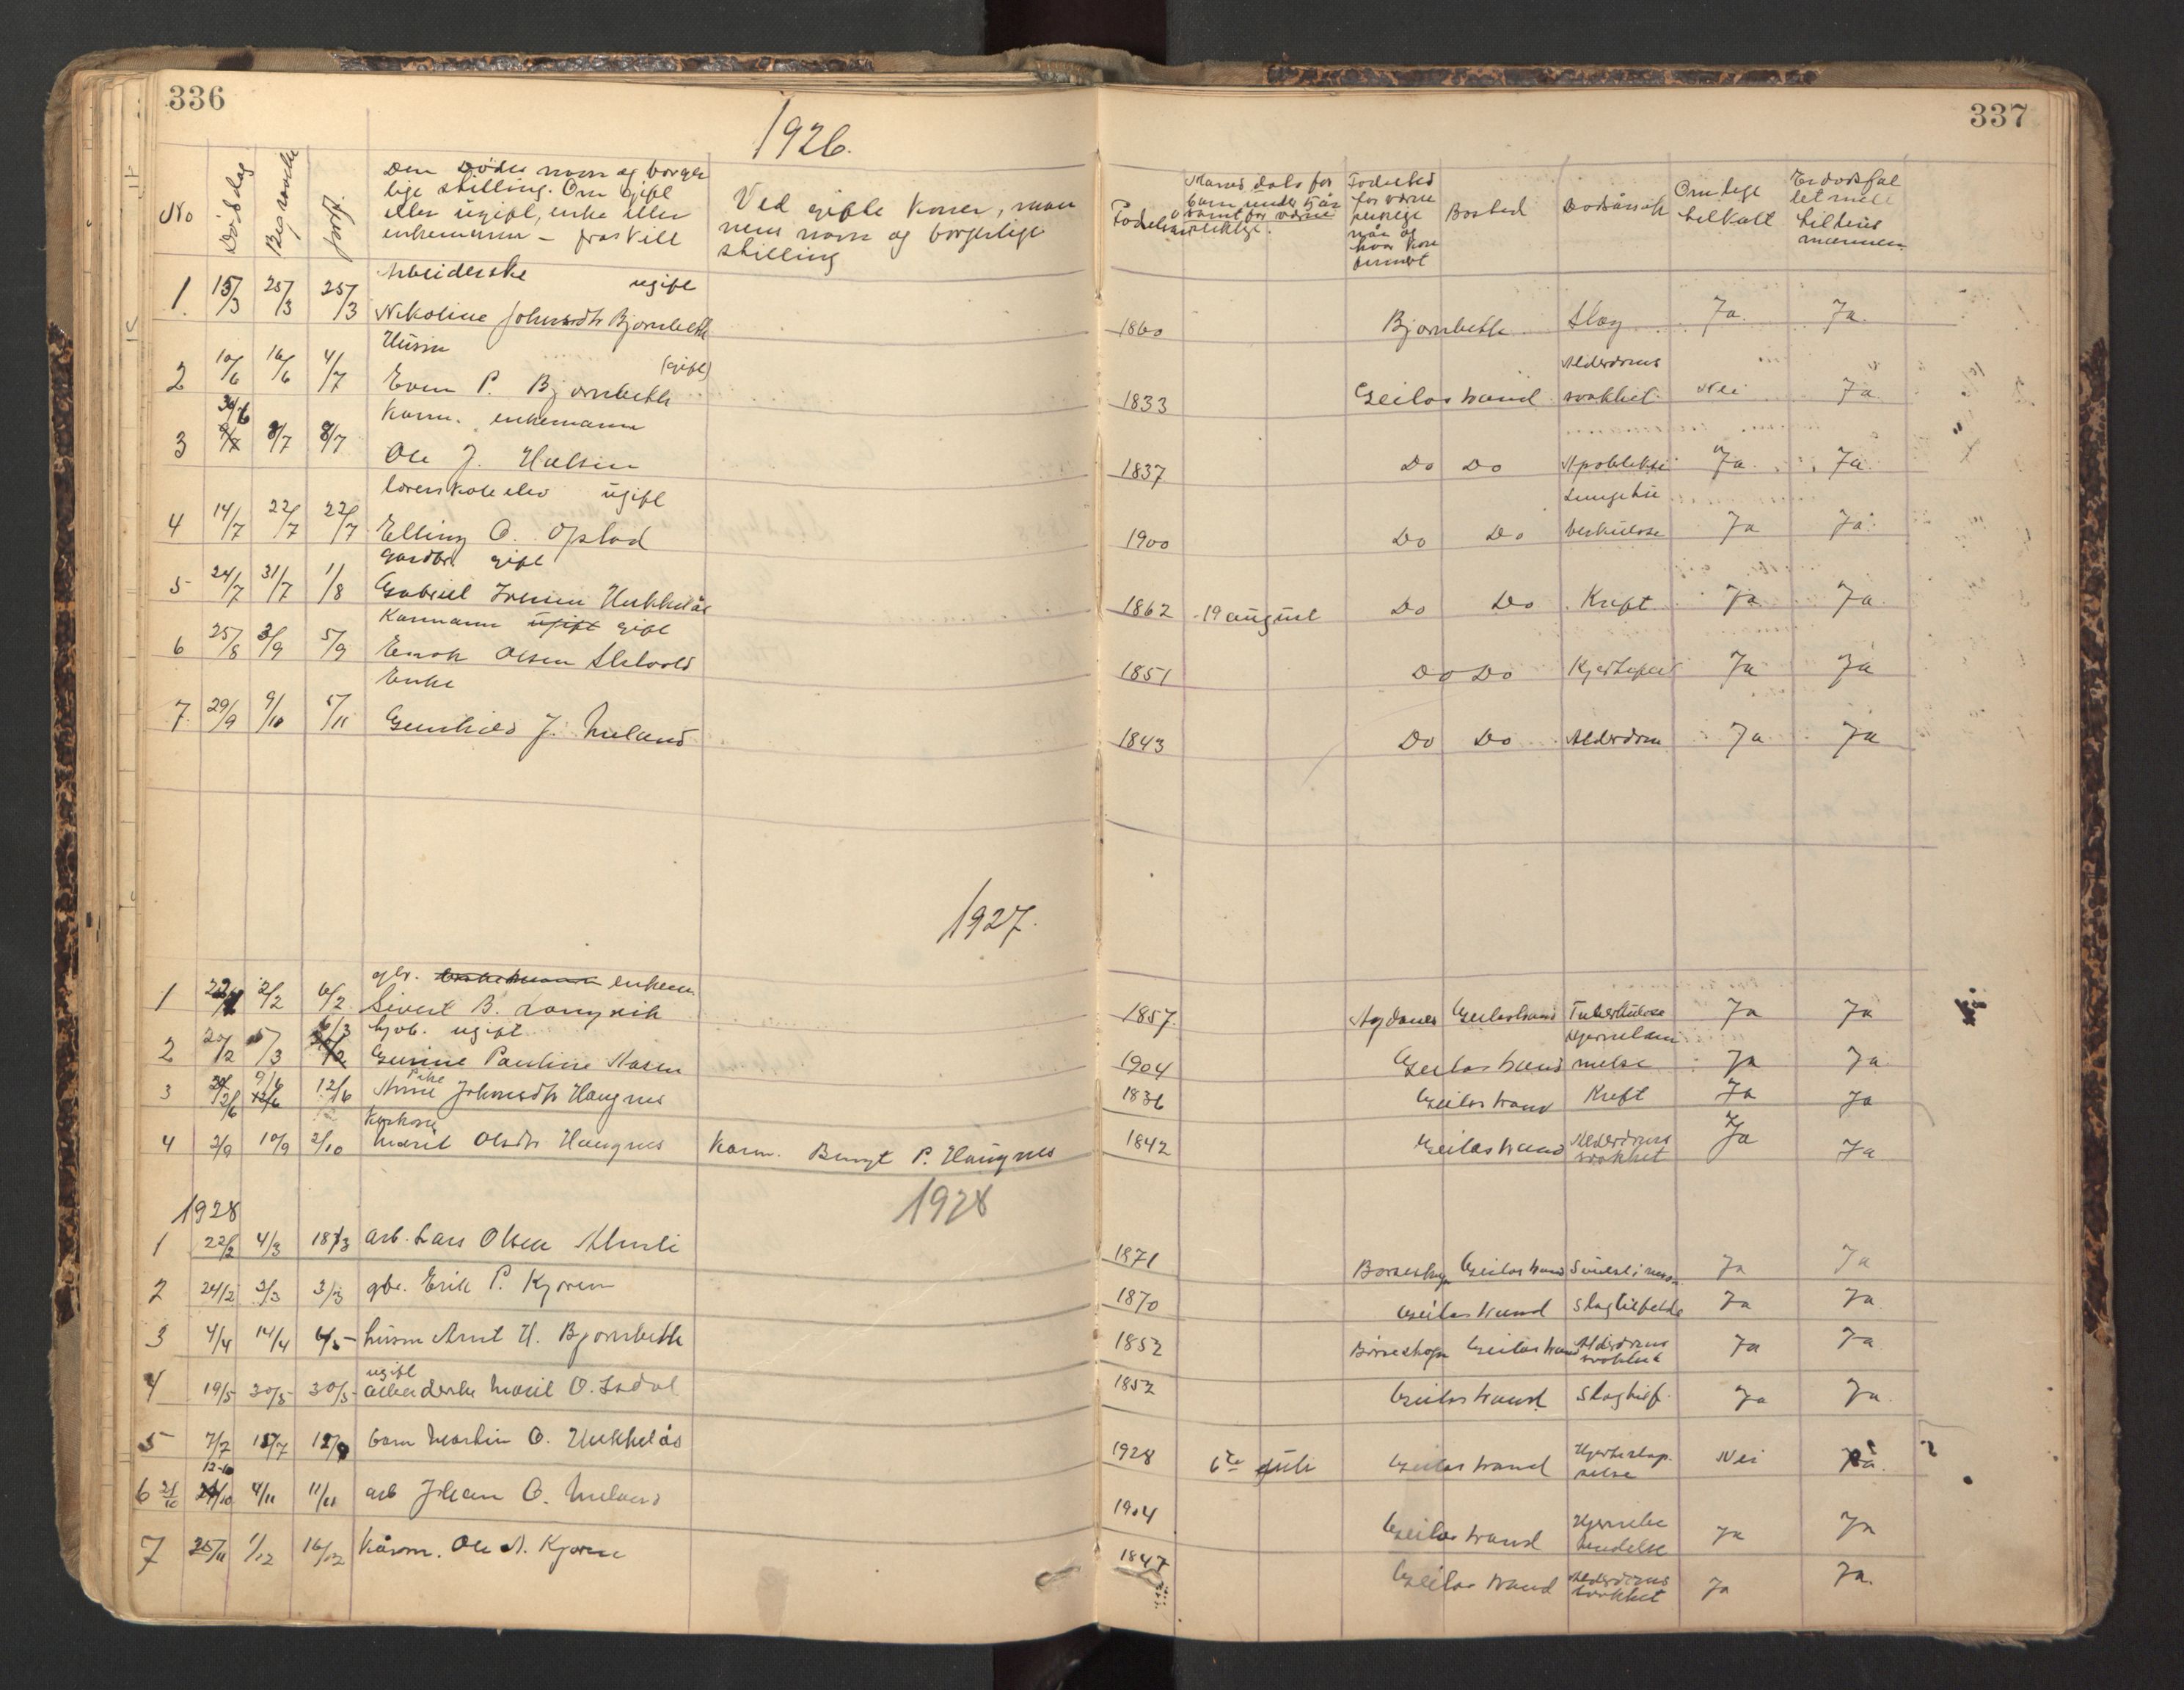 336
1926.
No
Dödsdag
Begravelse
Jordf.
Den Dödes navn og borger
lige stilling. Om gift
eller ugift, enke eller
enkemann – fraskilt
Ved gifte koner, man
nens navn og borgerlige
stilling
1 15/3 25/3 25/3 Arbeiderske ugift
Nikoline Johnsdtr Bjørnbeth
2 10/6 16/6 4/7 Husm (gift)
Even P. Bjørnbeth
3 30/6 8/7 8/7 Kaarm. enkemann
Ole J. Halsen
4 14/7 22/7 22/7 ugift
Elling O. Opstad
5 24/7 31/7 1/8 Gardbr. gift
Gabriel Hukkelås
6 25/8 3/9 5/9 Kårmann ugift gift
Enok Olsen Sletvold
7. 29/9 9/10 5/11 Enke
Gunhild J. Muland
1927.
1 22/1 2/2 6/2 gbr. enkem
Sivert B. Langvik
2 20/2 5/3 6/3 ugift
Gurine Pauline Aasen
3 2/6 9/6 12/6 Pike
Anne Johnsdtr Haugnes
4 2/9 10/9 2/10 Kårkone
Marit Olsdtr Haugnes Kaarm. Bengt P. Haugnes
1928
1928
1 22/2 4/3 18/3 arb. Lars Olsen
2 24/2 3/3 3/3 gbr. Erik P. Kjøren
3 4/4 14/4 6/5 husm Arnt H. Bjørnbeth
4 19/5 30/5 30/5 ugift
arbeiderske Marit O. Indal
5 7/7 15/7 barn Martin O. Hukkelås
12-10
6 21/10 4/11 11/11 arb Johan O. Muland
7 25/11 1/12 16/12 Kårm. Ole A. Kjøren
337
Födselsår
Maaned dato for
barn under 5 år
samt for værne
pliktige.
Fodested
for værne
pliktige
når og
hvor kon
firmert
Bosted
Dødsårsak
Om lege
tilkalt
Er dødsfal
let meldt
til lens
mannen
1860 Bjørnbeth Slag Ja. Ja.
1833 Geitastrand Alderdoms
svakhet Nei Ja
1837 Do Do Apopleksi Ja Ja
1900 Do Do Lungetu
berkulose Ja Ja
1862 19 august Do Do Kreft Ja Ja
1851 Do Do Hjertefeil Ja Ja
1843 Do Do Alderdom Ja Ja
1857 Agdenes Geitastrand Tuberkulose Ja Ja
1904 Geitastrand Hjernelam
melse Ja Ja
1836 Geitastrand Kreft Ja Ja
1842 Geitastrand Alderdoms
svakhet Ja Ja
1871 Børseskogn Geitastrand Ja Ja
1870 Geitastrand Slagtilfelde Ja Ja
1852 Børseskogn Geitastrand Alderdoms
svakhet Ja Ja
1852 Geitastrand Slagtilf. Ja Ja.
1928 6te juli Geitastrand Nei Ja.
1904 Geitastrand Hjernebe
tendelse Ja Ja
1847 Geitastrand Alderdoms
svakhet Ja Ja.